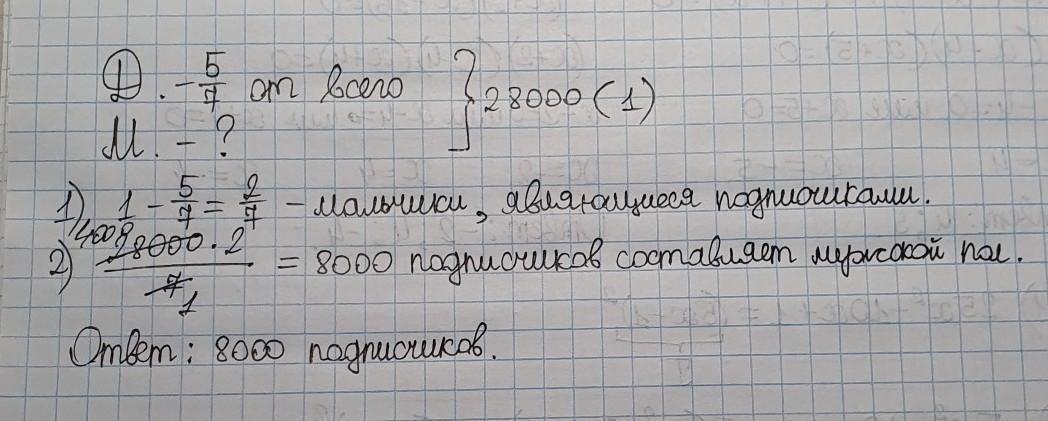 Д. - 5/7 от всего } 28000 (1)
М. - ?
1) 1 - 5/7 = 2/7 - мальчики, являющиеся подписчиками.
2) 4000 28000 · 2 / 7 1 = 8000 подписчиков составляет мужской пол.
Ответ: 8000 подписчиков.